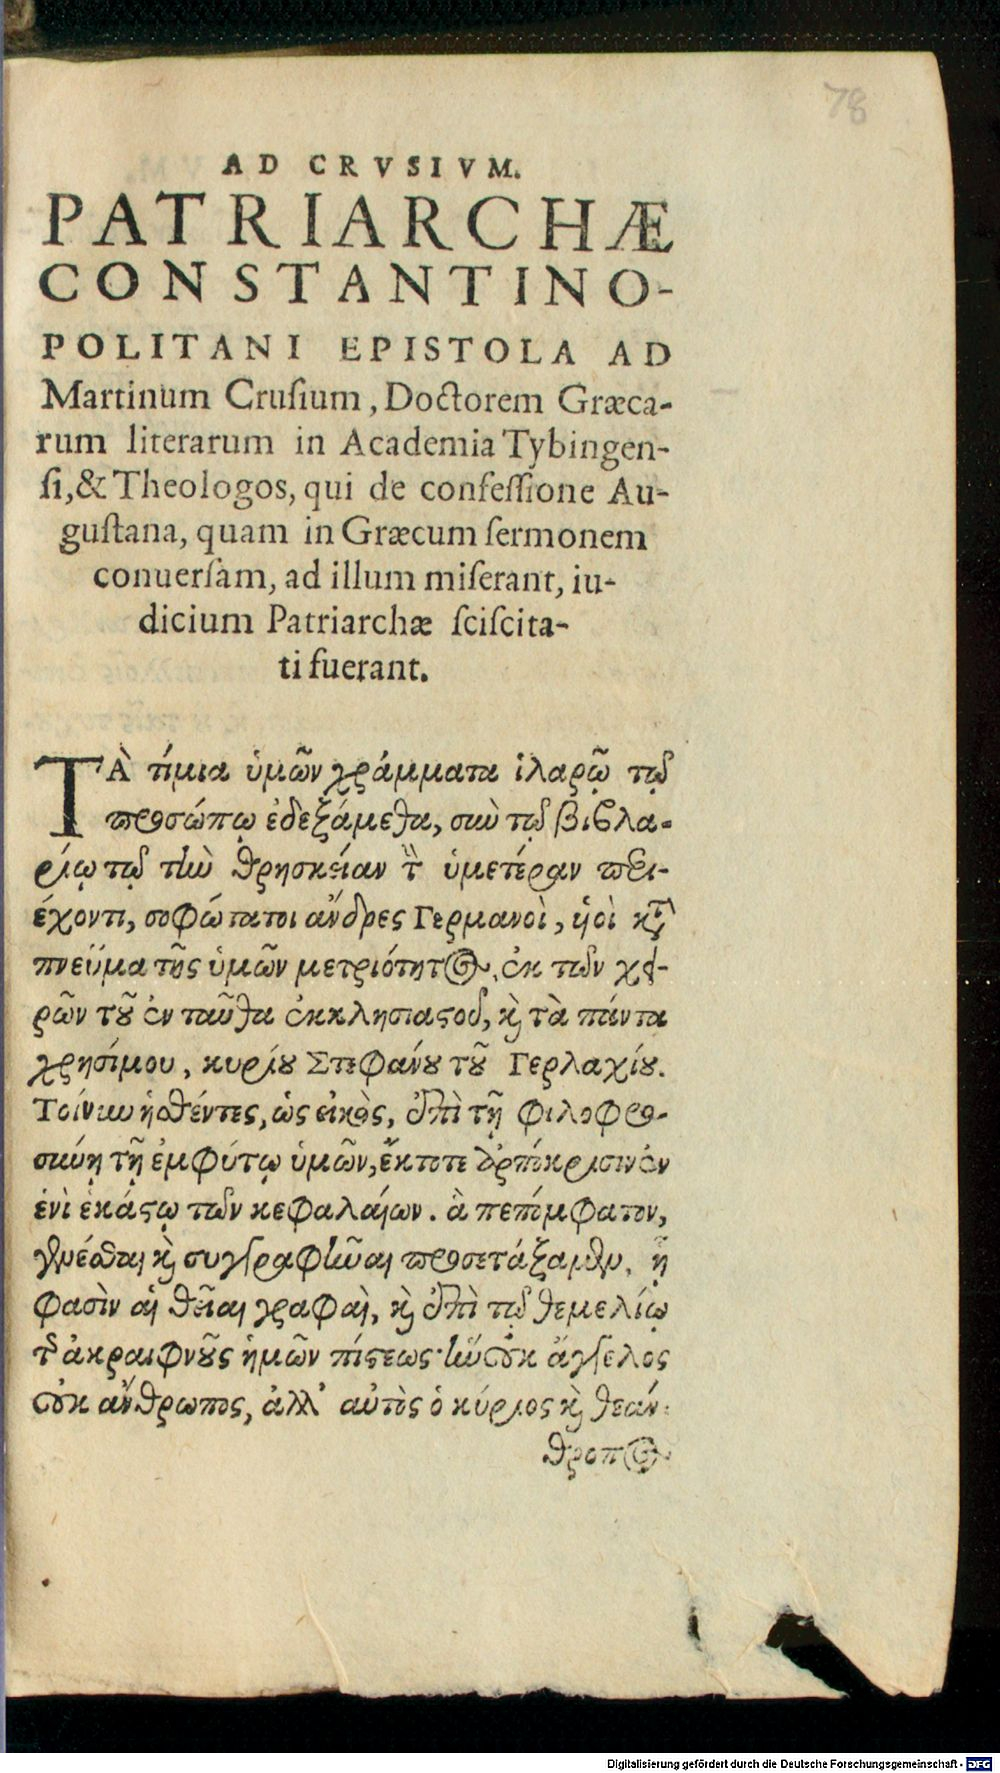 78
AD CRVSIVM.
PATRIARCHÆ
CONSTANTINO-
POLITANI EPISTOLA AD
Martinum Cruſium, Doctorem Græca-
rum literarum in Academia Tybingen-
ſi, & Theologos, qui de confeſſione Au-
guſtana, quam in Græcum ſermonem
conuerſam, ad illum miſerant, iu-
dicium Patriarchæ ſciſcita-
ti fuerant.
ΤᾺ τίμια ὑμῶν γράμματα ἱλαρῷ τῷ
προσώπῳ ἐδεξάμεθα, σὺν τῷ βιβλα-
ρίῳ τῷ τὴν θρησκείαν τὴν ὑμετέραν περι-
έχοντι, σοφώτατοι ἄνδρες Γερμανοὶ, ὑοὶ κατὰ
πνεῦμα τῆς ὑμῶν μετριότητος, ἐκ τῶν χει-
ρῶν τοῦ ἐνταῦθα ἐκκλησιαστοῦ, καὶ τὰ πάντα
χρησίμου, κυρίου Στεφάνου τοῦ Γερλαχίου.
Τοίνυν ἡσθέντες, ὡς εἰκὸς, ἐπὶ τῇ φιλοφρο-
σύνῃ τῇ ἐμφύτῳ ὑμῶν, ἔκτοτε ἀπόκρισιν ἐν
ἑνὶ ἑκάστῳ τῶν κεφαλαίων. ἃ πεπόμφατον,
γενέσθαι καὶ συγγραφῆναι προσετάξαμεν, ᾗ
φασὶν αἱ θεῖαι γραφαὶ, καὶ ἐπὶ τῷ θεμελίῳ
τῆς ἀκραιφνοῦς ἡμῶν πίστεως· ἣν οὐκ ἄγγελος
οὐκ ἄνθρωπος, ἀλλ' αὐτὸς ὁ κύριος καὶ θεάν-
θροπος
Digitalisierung gefördert durch die Deutsche Forschungsgemeinschaft - DFG